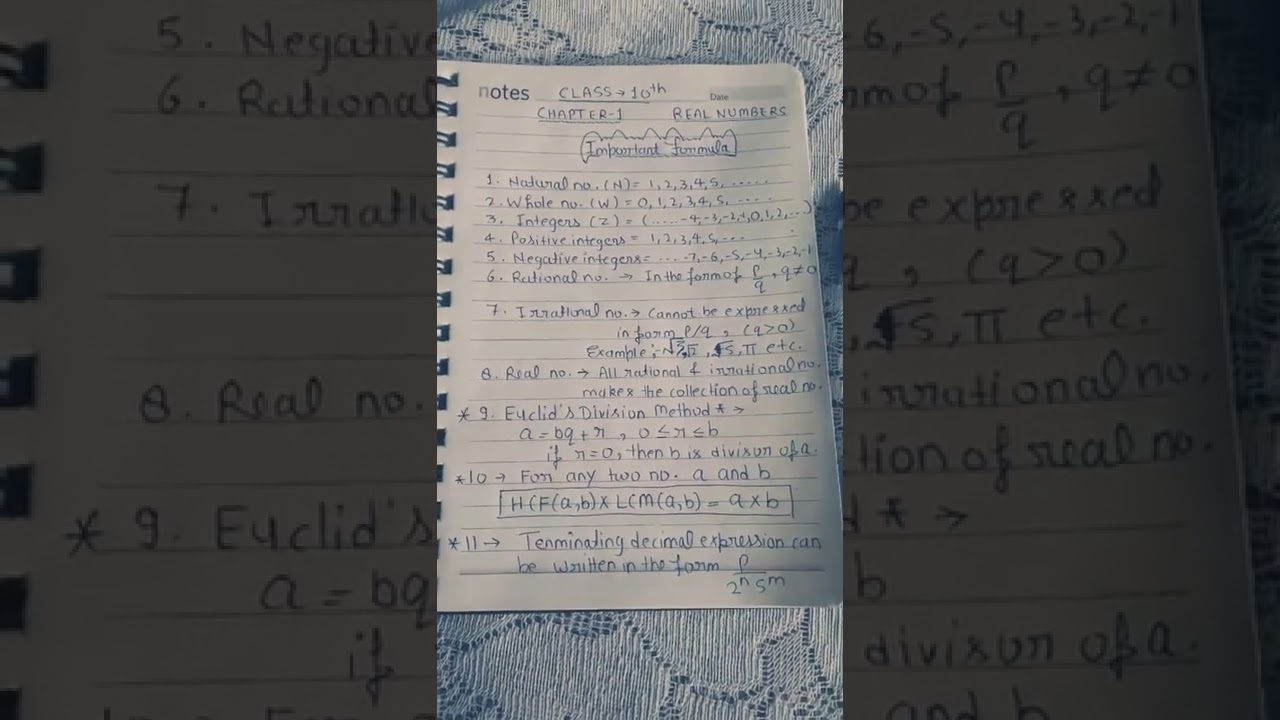 notes CLASS → 10th Date
CHAPTER-1 REAL NUMBERS
Important formula
1. Natural no. (N) = 1, 2, 3, 4, 5, .....
2. Whole no. (W) = 0, 1, 2, 3, 4, 5, ....
3. Integers (Z) = (.... -4, -3, -2, -1, 0, 1, 2, ...)
4. Positive integers = 1, 2, 3, 4, 5, ...
5. Negative integers = .... -7, -6, -5, -4, -3, -2, -1
6. Rational no. → In the form of p/q, q ≠ 0
7. Irrational no. → Cannot be expressed
in form p/q, (q>0)
Example:- √3, √2, √5, π etc.
8. Real no. → All rational & irrational no.
makes the collection of real no.
* 9. Euclid's Division Method * →
a = bq + r, 0 ≤ r ≤ b
if r = 0, then b is divisor of a.
*10 → For any two no. a and b
HCF(a,b) x LCM(a,b) = a x b
*11 → Terminating decimal expression can
be written in the form p/2^n 5^m